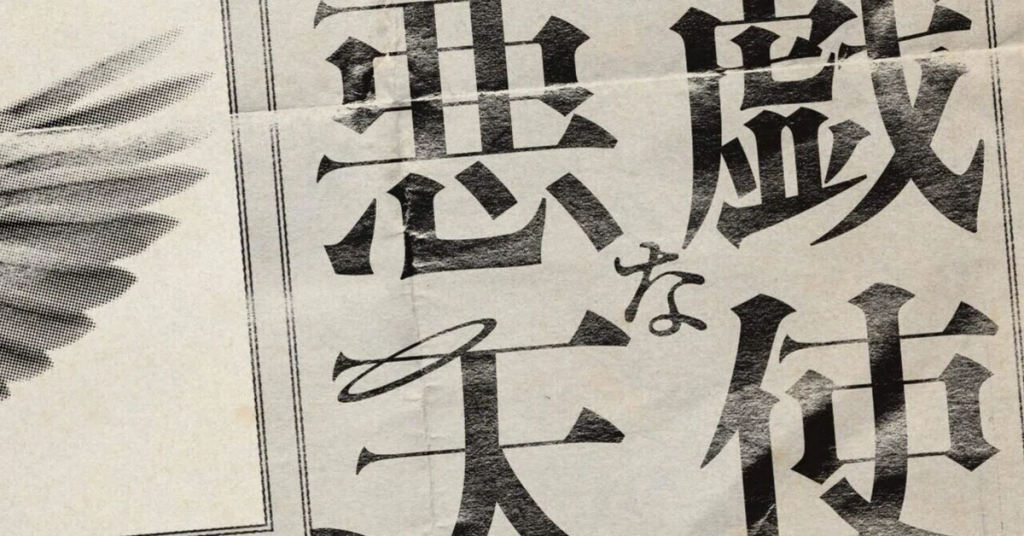 悪戯
な
天使